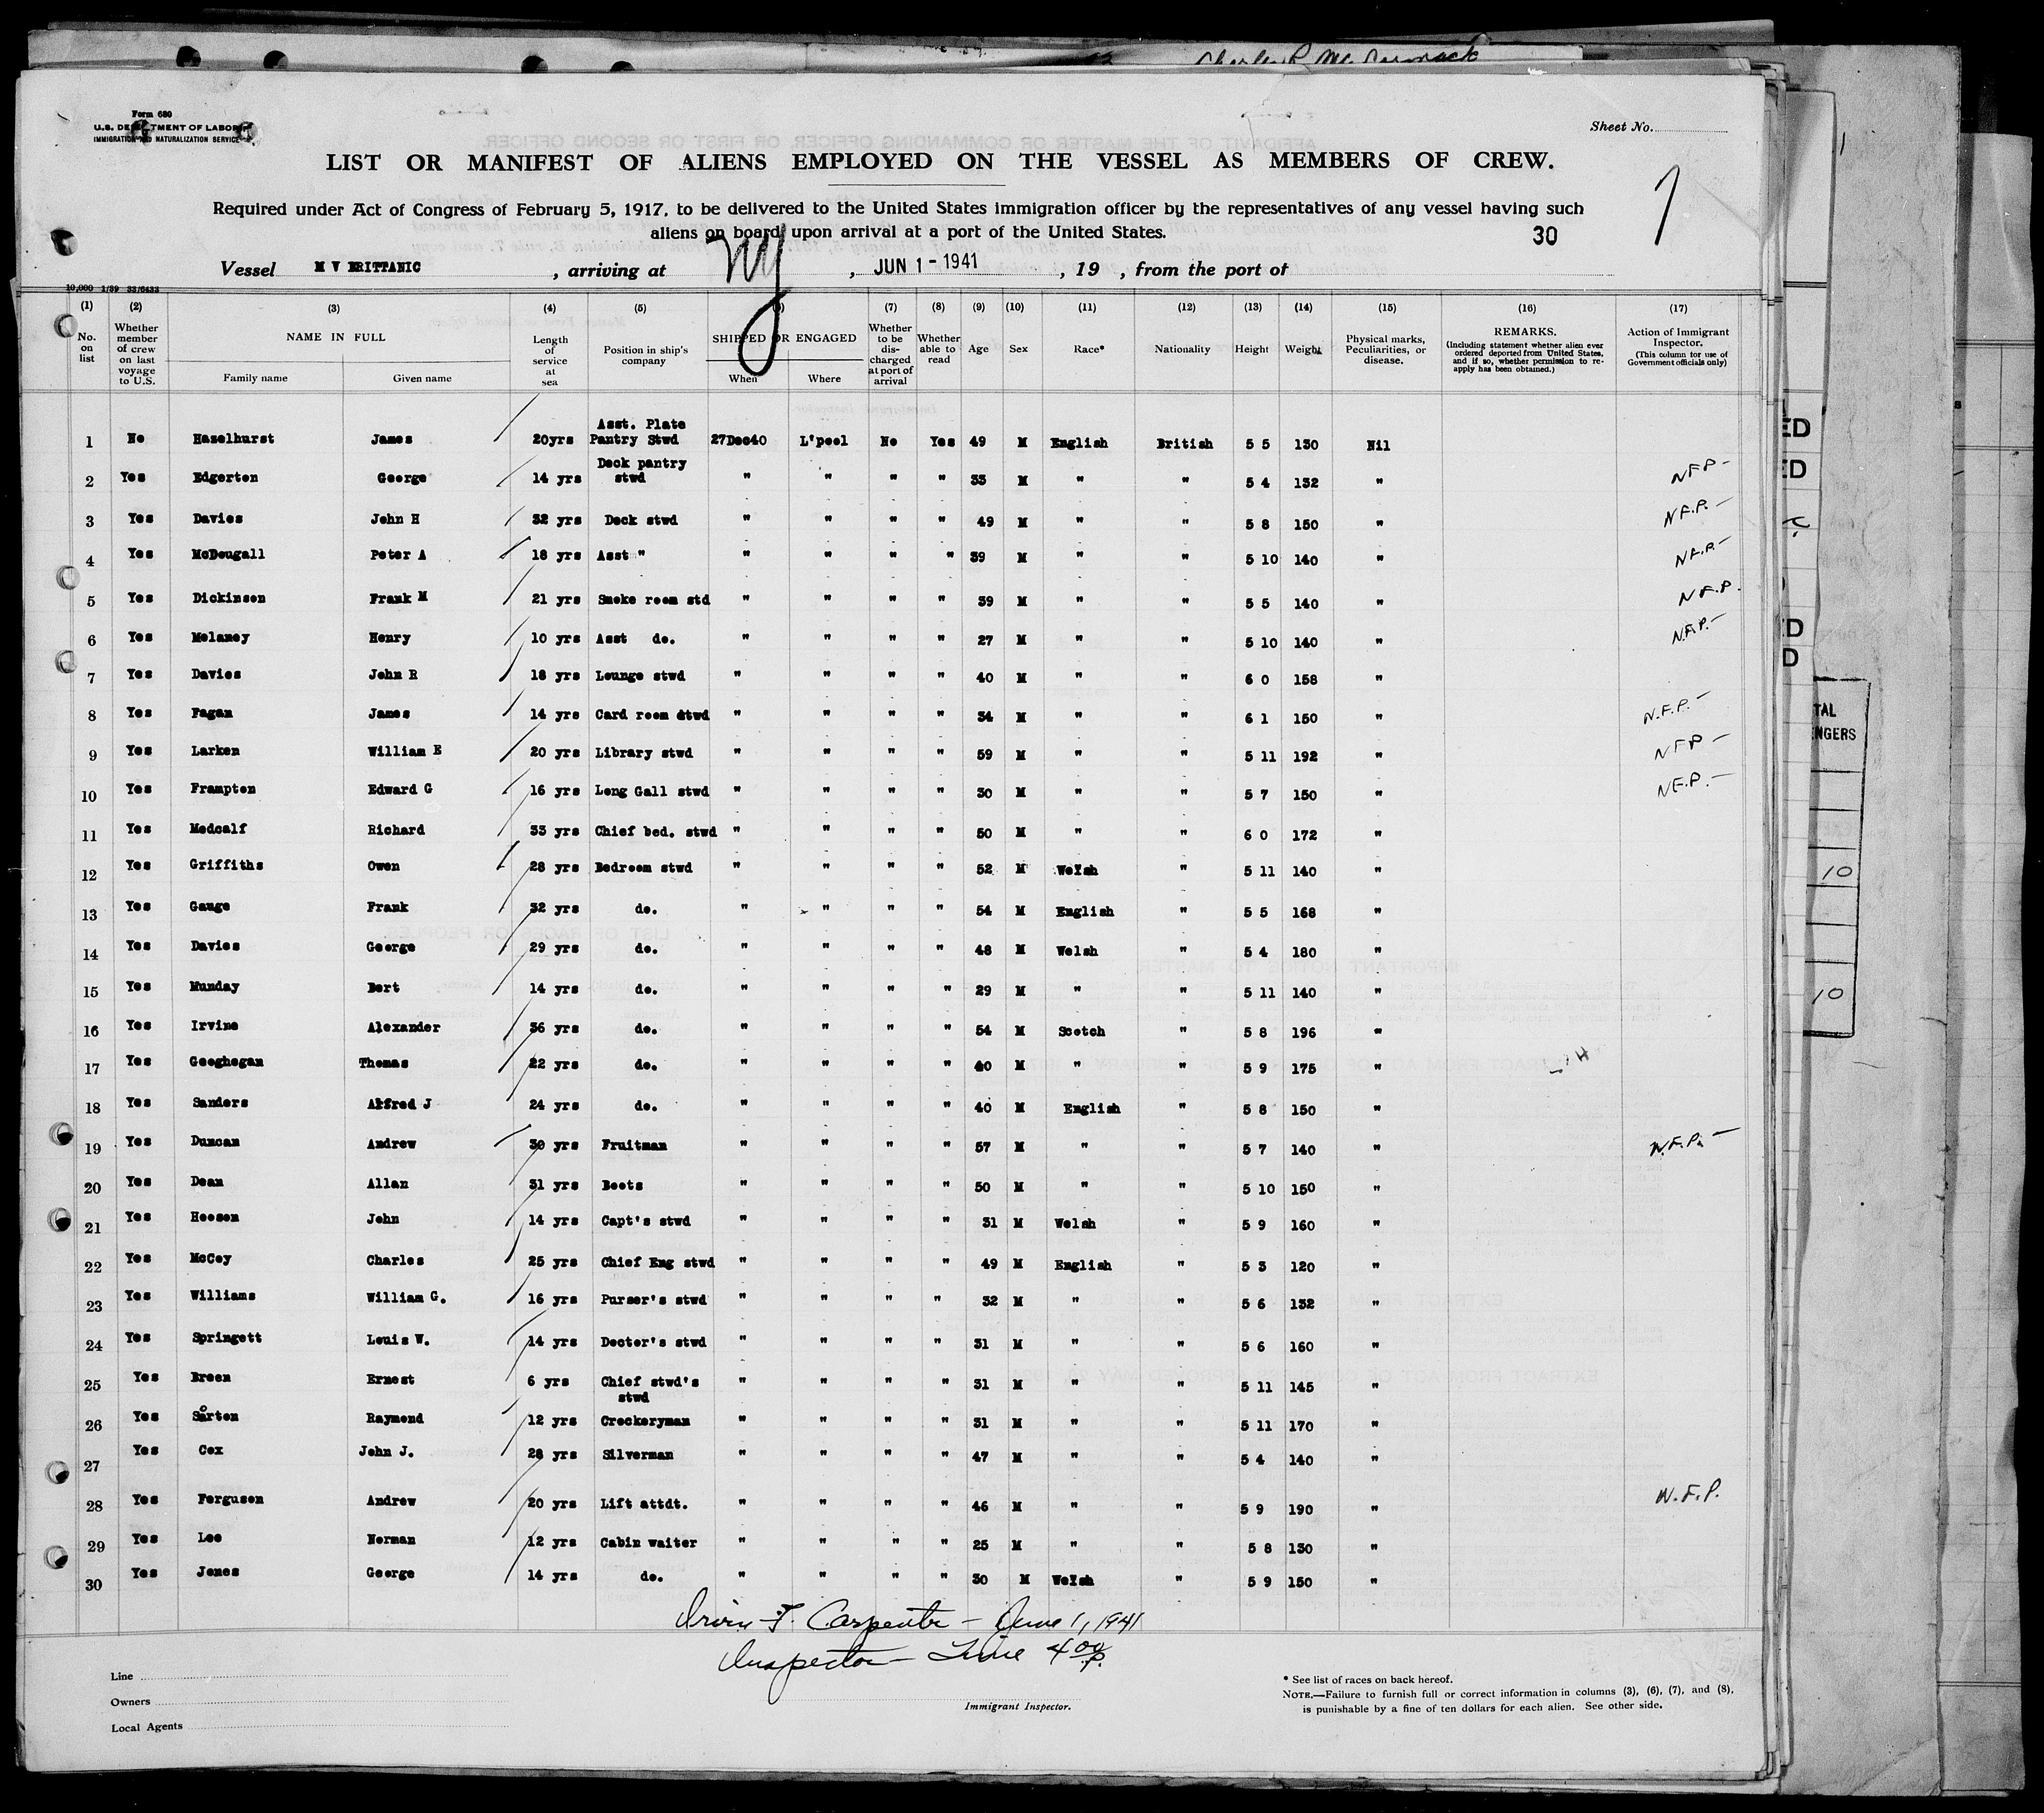 Charles P. McCormack
Form 680
U.S. DEPARTMENT OF LABOR
IMMIGRATION AND NATURALIZATION SERVICE
Sheet No.
LIST OR MANIFEST OF ALIENS EMPLOYED ON THE VESSEL AS MEMBERS OF CREW.
Required under Act of Congress of February 5, 1917, to be delivered to the United States immigration officer by the representatives of any vessel having such
aliens on board upon arrival at a port of the United States.
30
Vessel M V BRITTANIC , arriving at NY , JUN 1 - 1941 , 19 , from the port of
10,000 1/39 33/6433
(1) (2) (3) (4) (5) (6) (7) (8) (9) (10) (11) (12) (13) (14) (15) (16) (17)
No. on list Whether member of crew on last voyage to U.S. NAME IN FULL Family name Given name Length of service at sea Position in ship's company SHIPPED OR ENGAGED When Where Whether to be discharged at port of arrival Whether able to read Age Sex Race* Nationality Height Weight Physical marks, Peculiarities, or disease. REMARKS. (Including statement whether alien ever ordered deported from United States, and if so, whether permission to reapply has been obtained.) Action of Immigrant Inspector. (This column for use of Government officials only)
1 No Hazelhurst James 20yrs Asst. Plate Pantry Stwd 27Dec40 L'pool No Yes 49 M English British 5 5 130 Nil
2 Yes Edgerton George 14 yrs Deck pantry stwd " " " " 33 M " " 5 4 132 " NFP -
3 Yes Davies John H 32 yrs Deck stwd " " " " 49 M " " 5 8 150 " N.F.P. -
4 Yes McDougall Peter A 18 yrs Asst " " " " " 39 M " " 5 10 140 " N.F.P. -
5 Yes Dickinson Frank M 21 yrs Smoke room std " " " " 39 M " " 5 5 140 " N.F.P.
6 Yes Melaney Henry 10 yrs Asst do. " " " " 27 M " " 5 10 140 " N.F.P. -
7 Yes Davies John R 18 yrs Lounge stwd " " " " 40 M " " 6 0 158 "
8 Yes Fagan James 14 yrs Card room stwd " " " " 34 M " " 6 1 150 " N.F.P. -
9 Yes Larken William E 20 yrs Library stwd " " " " 59 M " " 5 11 192 " NFP -
10 Yes Frampton Edward G 16 yrs Long Gall stwd " " " " 30 M " " 5 7 150 " N.F.P. -
11 Yes Medcalf Richard 33 yrs Chief bed. stwd " " " " 50 M " " 6 0 172 "
12 Yes Griffiths Owen 28 yrs Bedroom stwd " " " " 52 M Welsh " 5 11 140 "
13 Yes Gauge Frank 32 yrs do. " " " " 54 M English " 5 5 168 "
14 Yes Davies George 29 yrs do. " " " " 48 M Welsh " 5 4 180 "
15 Yes Munday Bert 14 yrs do. " " " " 29 M " " 5 11 140 "
16 Yes Irvine Alexander 36 yrs do. " " " " 54 M Scotch " 5 8 196 "
17 Yes Geoghegan Thomas 22 yrs do. " " " " 40 M " " 5 9 175 "
18 Yes Sanders Alfred J 24 yrs do. " " " " 40 M English " 5 8 150 "
19 Yes Duncan Andrew 30 yrs Fruitman " " " " 57 M " " 5 7 140 " N.F.P. -
20 Yes Dean Allan 31 yrs Boots " " " " 50 M " " 5 10 150 "
21 Yes Hooson John 14 yrs Capt's stwd " " " " 31 M Welsh " 5 9 160 "
22 Yes McCoy Charles 25 yrs Chief Eng stwd " " " " 49 M English " 5 3 120 "
23 Yes Williams William G. 16 yrs Purser's stwd " " " " 32 M " " 5 6 132 "
24 Yes Springett Louis W. 14 yrs Doctor's stwd " " " " 31 M " " 5 6 160 "
25 Yes Breen Ernest 6 yrs Chief stwd's stwd " " " " 31 M " " 5 11 145 "
26 Yes Sorton Raymond 12 yrs Crockeryman " " " " 31 M " " 5 11 170 "
27 Yes Cox John J. 28 yrs Silverman " " " " 47 M " " 5 4 140 "
28 Yes Ferguson Andrew 20 yrs Lift attdt. " " " " 46 M " " 5 9 190 " N.F.P.
29 Yes Lee Norman 12 yrs Cabin waiter " " " " 25 M " " 5 8 130 "
30 Yes Jones George 14 yrs do. " " " " 30 M Welsh " 5 9 150 "
Irvin F. Carpenter - June 1, 1941
Inspector - Time 4 00 p.
Line
Owners
Local Agents
Immigrant Inspector.
* See list of races on back hereof.
NOTE.—Failure to furnish full or correct information in columns (3), (6), (7), and (8),
is punishable by a fine of ten dollars for each alien. See other side.
10
10